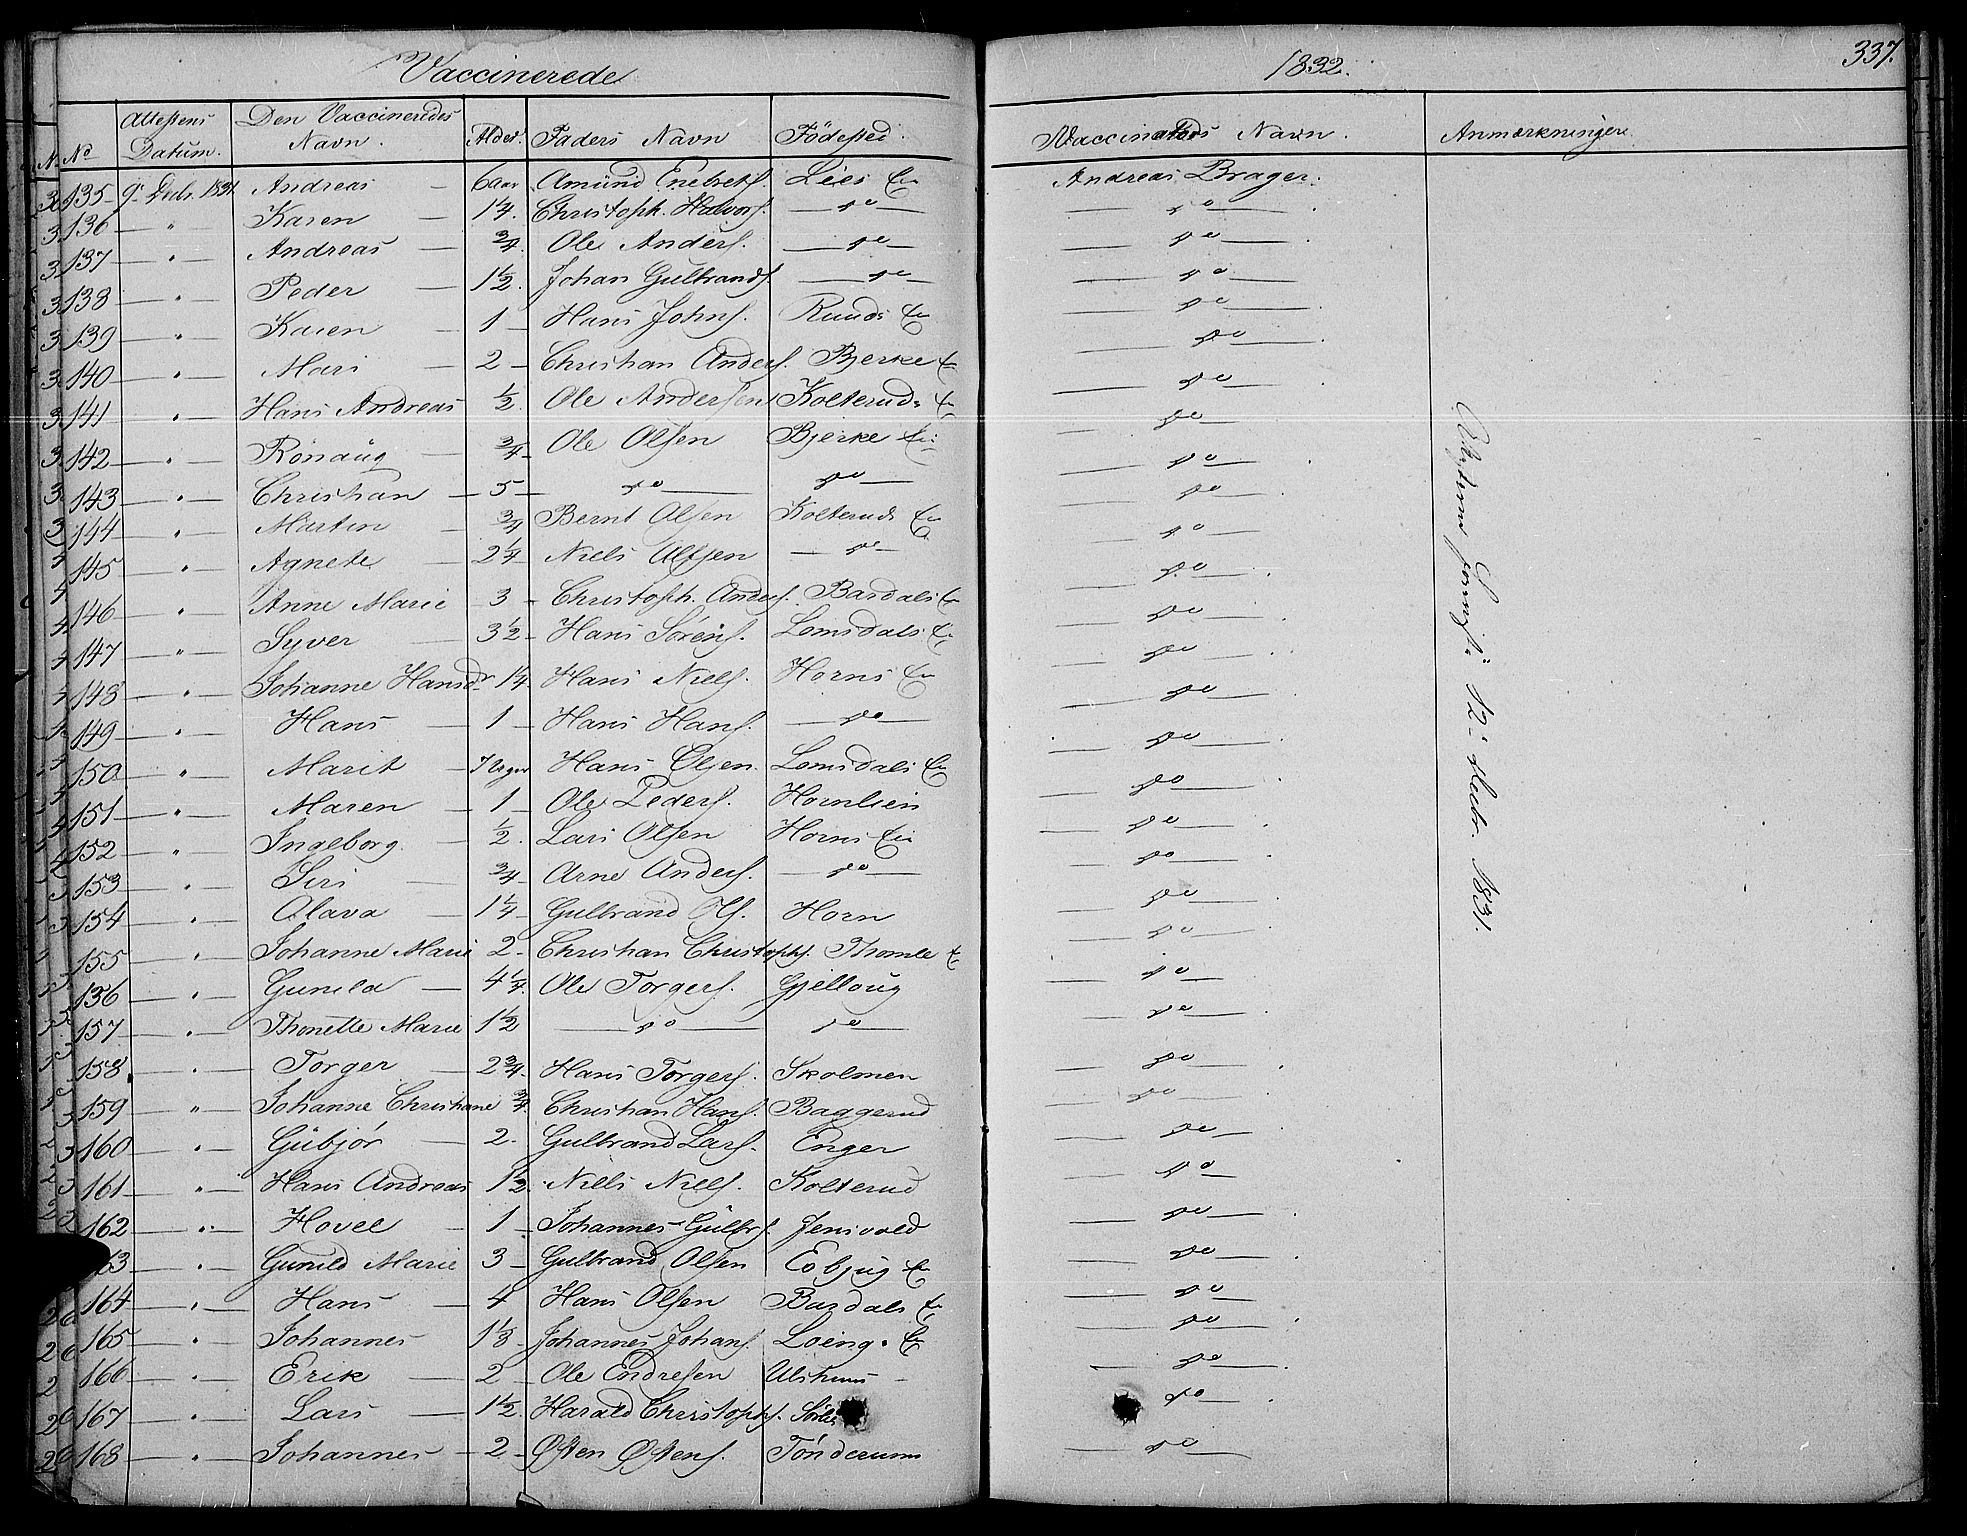 Vaccinerede
1832.
337.
No Attestens Datum. Den Vaccineredes Navn. Alder. Faders Navn Födested. Vaccinators Navn. Anmærkninger.
135 9 Decbr. 1831. Andreas 6 Aar Amund Enebrets. Lies Ei Andreas Brager.
136 — " — Karen — 1¼. Christoph. Halvors. — do — — do —
137 — " — Andreas — ¾. Ole Anders. — do — — do —
138 — " — Peder — 1½. Johan Gulbrands. — do — — do —
139 — " — Karen — 1 — Hans Johns. Ruuds Ei — do —
140 — " — Mari — 2 — Christian Anders. Bjerke Ei — do —
141 — " — Hans Andreas ½. Ole Andersen Kolteruds Ei — do —
142 — " — Rönaug — ¾ — Ole Olsen Bjerke Ei — do —
143 — " — Christian — 5 — do — — do — — do —
144 — " — Martin — ¾ Bernt Olsen Kolteruds Ei — do —
145 — " — Agnete — 2¼ Niels Olsen — do — — do —
146 — " — Anne Marie 3 — Christoph. Anders. Basdals Ei — do —
147 — " — Syver — 3½ — Hans Sörens. Lomsdals Ei — do —
148 — " — Johanne Hansdr. 1¼ Hans Niels. Horns Ei — do —
149 — " — Hans — 1 — Hans Hans. — do — — do —
150 — " — Marit — 7 Uger Hans Olsen Lomsdals Ei — do —
151 — " — Maren — 1 — Ole Peders. Hornlien — do —
152 — " — Ingeborg — ½. Lars Olsen Horns Ei — do —
153 — " — Siri — ¾ Arne Anders. — do — — do —
154 — " — Olava — 1¼ — Gulbrand Ols. Horn — do —
155 — " — Johanne Marie 2 — Christian Christophs. Thomle Ei — do —
156 — " — Gunild — 4¼. Ole Torgers. Gjelloug — do —
157 — " — Thonette Marie 1½ — do — — do — — do —
158 — " — Torger — 2¾. Hans Torgers. Skolmen — do —
159 — " — Johanne Christiane ¾ Christian Hans. Baggerud — do —
160 — " — Gubjör — 2. Gulbrand Lars. Enger — do —
161 — " — Hans Andreas 1½. Niels Niels. Kolterud — do —
162 — " — Hovel — 1 — Johannes Gulbrs. Jensvold — do —
163 — " — Gunild Marie 3 — Gulbrand Olsen Eobjug Ei — do —
164 — " — Hans — 4 Hans Olsen Basdals Ei — do —
165 — " — Johannes 1⅓ — Johannes Johans. Loeng. Ei — do —
166 — " — Erik — 2 — Ole Endresen — do —
167 — " — Lars — 1½. Harald Christophs. — do —
168 — " — Johannes — 2 — Østen Østens. Tönderum — do —
12 Decbr. 1831.